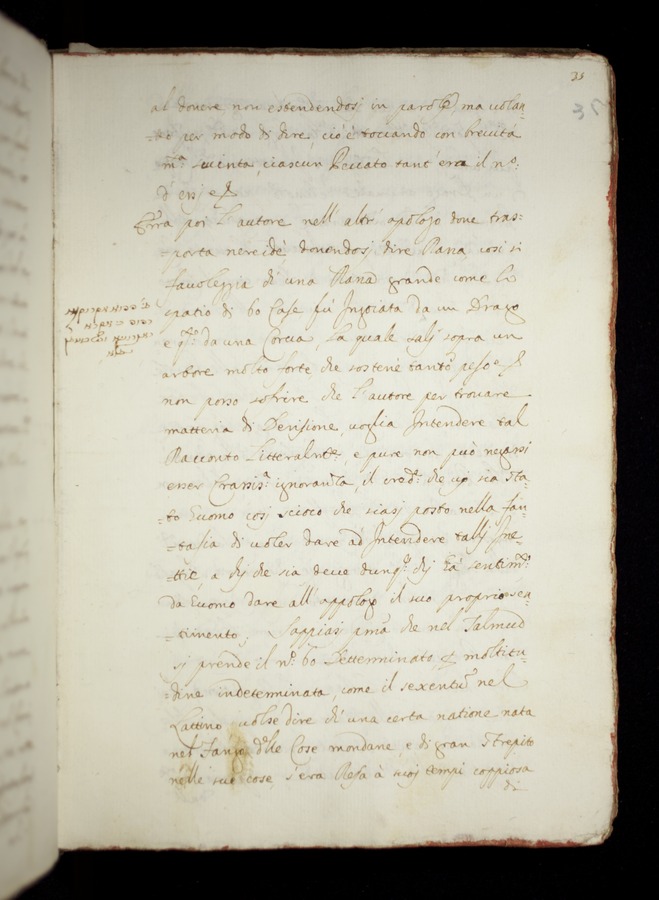 31
35
al dovere non estendendosi in parole, ma volan-
-do per modo di dire, cioè toccando con brevità
succinta, ciascun Peccato tant'era il n.º
d'essi e
Erra poi l'autore nell'altr'apologo dove tras-
-porta nereide dovendosi dire Rana così si
favoleggia di una Rana grande come lo
spatio di 60 Case fu Ingoiata da un Drago
e q.º da una Corva, la quale salj sopra un
arbore molto forte, che sostenè tanto peso e
non posso soffrire che l'autore per trovare
matteria di Derisione, voglia Intendere tal
Racconto Litteralm.te e pure non può negarsi
esser Crassis.ª ignoranza, il cred.e che vi sia sta-
-to Euomo così scioco che siasi posto nella fan-
-tasia di voler dare ad Intendere talj Ine-
-ttie, a chj che sia deve dunq.e chj ha sentim.to
da Euomo dare all'appologo il suo proprio sen-
-timento; Sappiasi pma che nel Talmud
si prende il n.º 60 Determinato p moltitu-
dine indeterminata, come il sexentu nel
Lattino volse dire ch'una certa natione nata
nel Fango delle Cose mondane, e di gran strepito
nelle sue cose s'era Resa à suoj tempi coppiosa